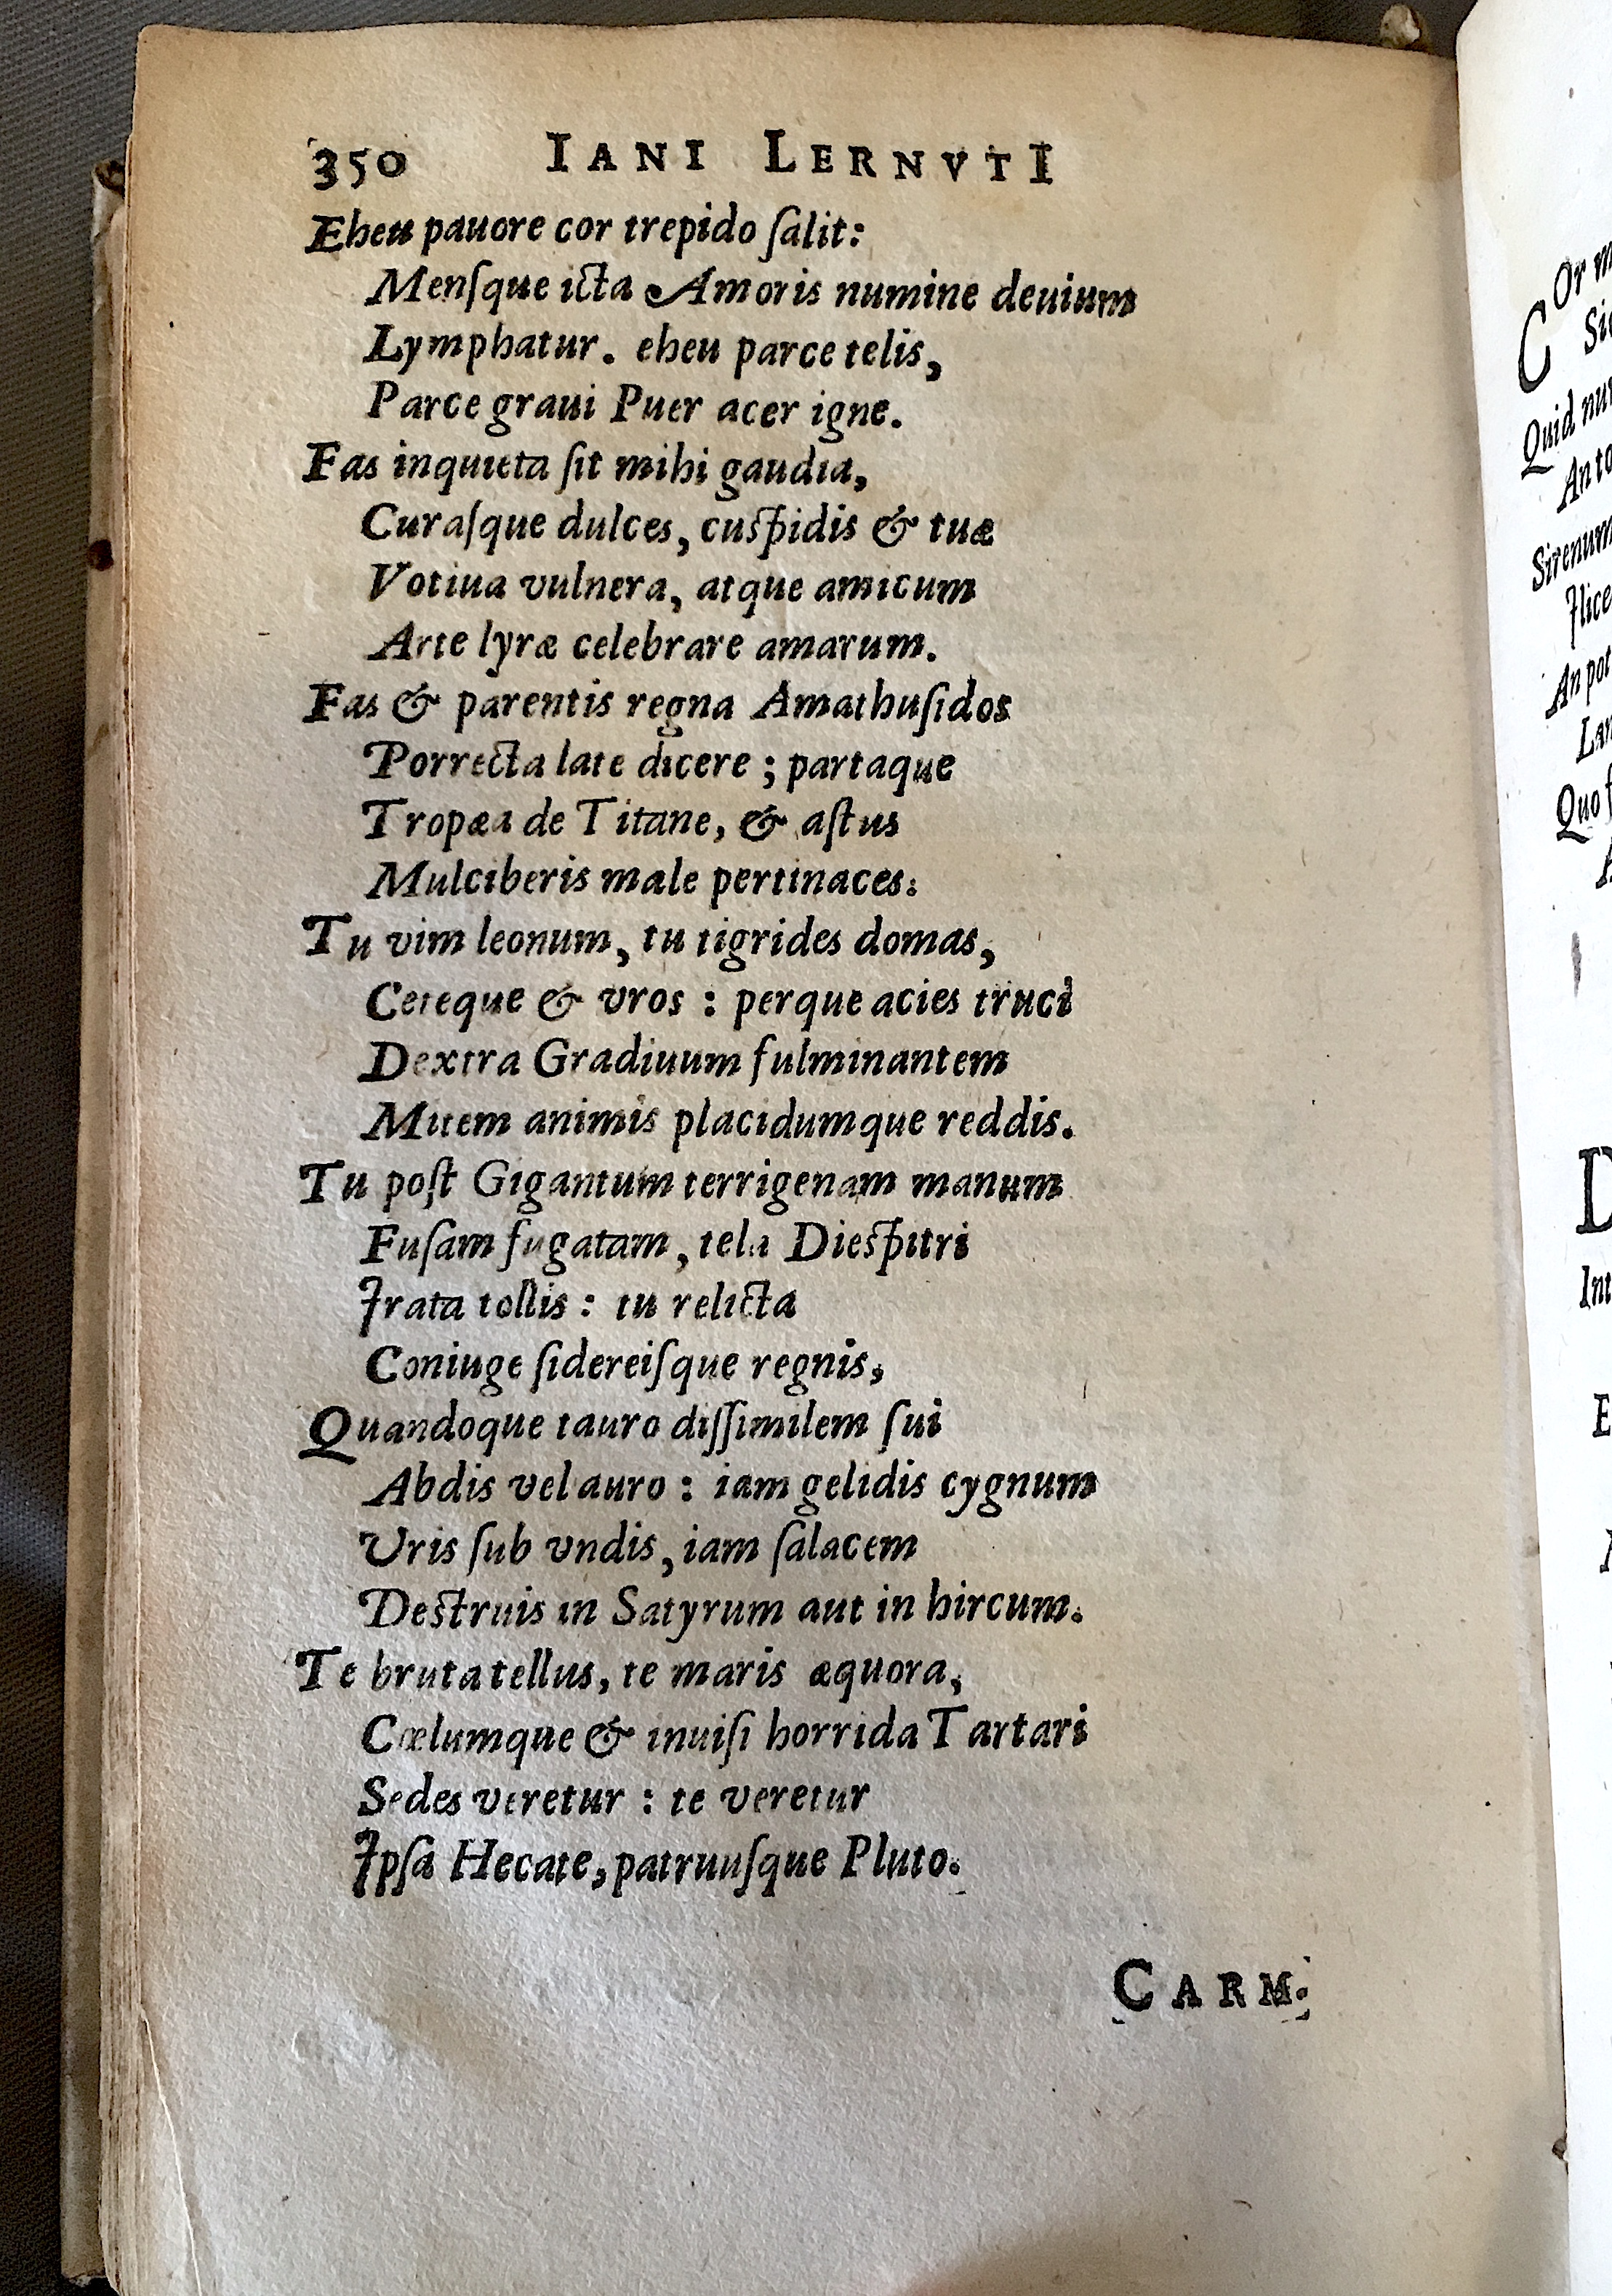 350 IANI LERNVTI
Eheu pauore cor trepido ſalit:
Menſque icta Amoris numine deuium
Lymphatur. eheu parce telis,
Parce graui Puer acer igne.
Fas inquieta ſit mihi gaudia,
Curaſque dulces, cuſpidis & tuæ
Votiua vulnera, atque amicum
Arte lyræ celebrare amarum.
Fas & parentis regna Amathuſidos
Porrecta late dicere ; partaque
Tropæa de Titane, & aſtus
Mulciberis male pertinaces.
Tu vim leonum, tu tigrides domas,
Ceteque & vros : perque acies truci
Dextra Gradiuum fulminantem
Mitem animis placidumque reddis.
Tu poſt Gigantum terrigenam manum
Fuſam fugatam, tela Dieſpitri
Irata tollis : tu relicta
Coniuge ſidereiſque regnis,
Quandoque tauro diſſimilem ſui
Abdis vel auro : iam gelidis cygnum
Vris ſub vndis, iam ſalacem
Deſtruis in Satyrum aut in hircum.
Te bruta tellus, te maris æquora,
Cœlumque & inuiſi horrida Tartari
Sedes veretur : te veretur
Ipſa Hecate, patruuſque Pluto.
CARM.
Quid
Sirenum
An
Quo